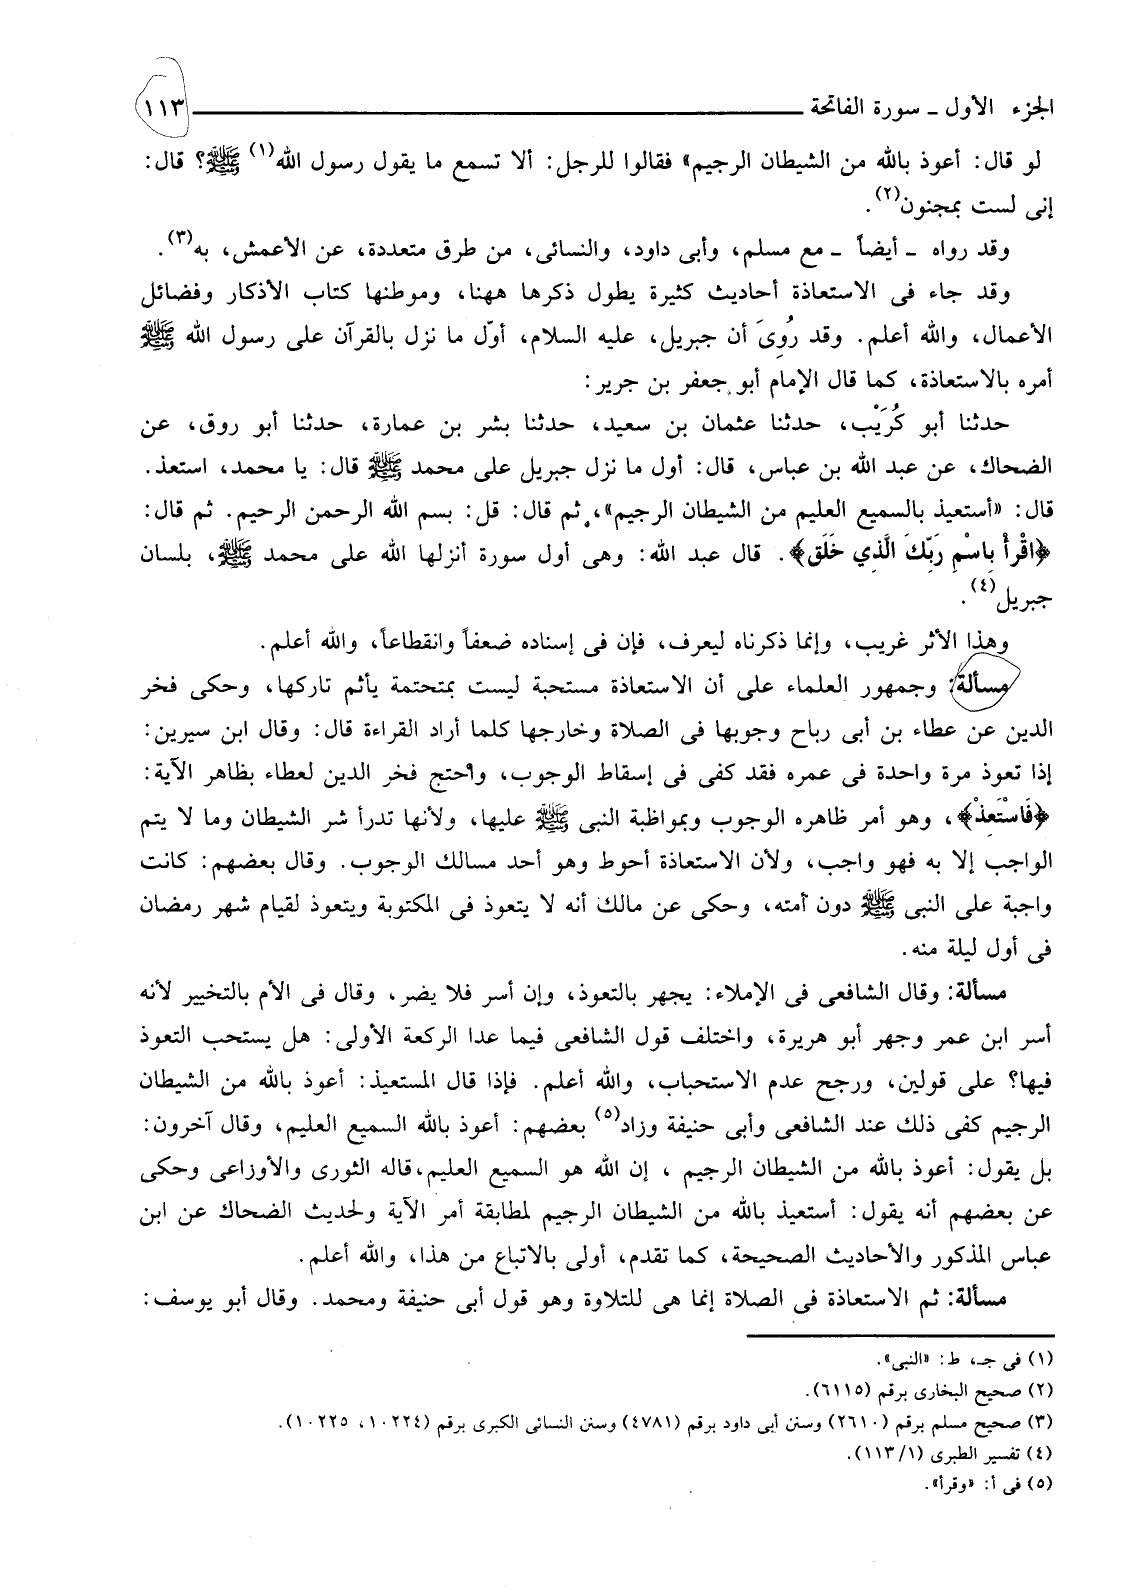 الجزء الأول ـ سورة الفاتحة ١١٣
لو قال: أعوذ بالله من الشيطان الرجيم» فقالوا للرجل: ألا تسمع ما يقول رسول الله(١) ﷺ؟ قال:
إنى لست بمجنون(٢).
وقد رواه ـ أيضاً ـ مع مسلم، وأبى داود، والنسائى، من طرق متعددة، عن الأعمش، به(٣).
وقد جاء فى الاستعاذة أحاديث كثيرة يطول ذكرها ههنا، وموطنها كتاب الأذكار وفضائل
الأعمال، والله أعلم. وقد رُوِىَ أن جبريل، عليه السلام، أوّل ما نزل بالقرآن على رسول الله ﷺ
أمره بالاستعاذة، كما قال الإمام أبو جعفر بن جرير:
حدثنا أبو كُرَيْب، حدثنا عثمان بن سعيد، حدثنا بشر بن عمارة، حدثنا أبو روق، عن
الضحاك، عن عبد الله بن عباس، قال: أول ما نزل جبريل على محمد ﷺ قال: يا محمد، استعذ.
قال: «أستعيذ بالسميع العليم من الشيطان الرجيم»، ثم قال: قل: بسم الله الرحمن الرحيم. ثم قال:
﴿اقْرأْ بِاسْمِ رَبِّكَ الَّذِي خَلَقَ﴾. قال عبد الله: وهى أول سورة أنزلها الله على محمد ﷺ، بلسان
جبريل(٤).
وهذا الأثر غريب، وإنما ذكرناه ليعرف، فإن فى إسناده ضعفاً وانقطاعاً، والله أعلم.
مسألة: وجمهور العلماء على أن الاستعاذة مستحبة ليست بمتحتمة يأثم تاركها، وحكى فخر
الدين عن عطاء بن أبى رباح وجوبها فى الصلاة وخارجها كلما أراد القراءة قال: وقال ابن سيرين:
إذا تعوذ مرة واحدة فى عمره فقد كفى فى إسقاط الوجوب، واحتج فخر الدين لعطاء بظاهر الآية:
﴿فَاسْتَعِذْ﴾، وهو أمر ظاهره الوجوب وبمواظبة النبى ﷺ عليها، ولأنها تدرأ شر الشيطان وما لا يتم
الواجب إلا به فهو واجب، ولأن الاستعاذة أحوط وهو أحد مسالك الوجوب. وقال بعضهم: كانت
واجبة على النبى ﷺ دون أمته، وحكى عن مالك أنه لا يتعوذ فى المكتوبة ويتعوذ لقيام شهر رمضان
فى أول ليلة منه.
مسألة: وقال الشافعى فى الإملاء: يجهر بالتعوذ، وإن أسر فلا يضر، وقال فى الأم بالتخيير لأنه
أسر ابن عمر وجهر أبو هريرة، واختلف قول الشافعى فيما عدا الركعة الأولى: هل يستحب التعوذ
فيها؟ على قولين، ورجح عدم الاستحباب، والله أعلم. فإذا قال المستعيذ: أعوذ بالله من الشيطان
الرجيم كفى ذلك عند الشافعى وأبى حنيفة وزاد(٥) بعضهم: أعوذ بالله السميع العليم، وقال آخرون:
بل يقول: أعوذ بالله من الشيطان الرجيم ، إن الله هو السميع العليم،قاله الثورى والأوزاعى وحكى
عن بعضهم أنه يقول: أستعيذ بالله من الشيطان الرجيم لمطابقة أمر الآية ولحديث الضحاك عن ابن
عباس المذكور والأحاديث الصحيحة، كما تقدم، أولى بالاتباع من هذا، والله أعلم.
مسألة: ثم الاستعاذة فى الصلاة إنما هى للتلاوة وهو قول أبى حنيفة ومحمد. وقال أبو يوسف:
(١) فى جـ، ط: «النبى».
(٢) صحيح البخارى برقم (٦١١٥).
(٣) صحيح مسلم برقم (٢٦١٠) وسنن أبى داود برقم (٤٧٨١) وسنن النسائى الكبرى برقم (١٠٢٢٤، ١٠٢٢٥).
(٤) تفسير الطبرى (١/ ١١٣).
(٥) فى أ: «وقرأ».